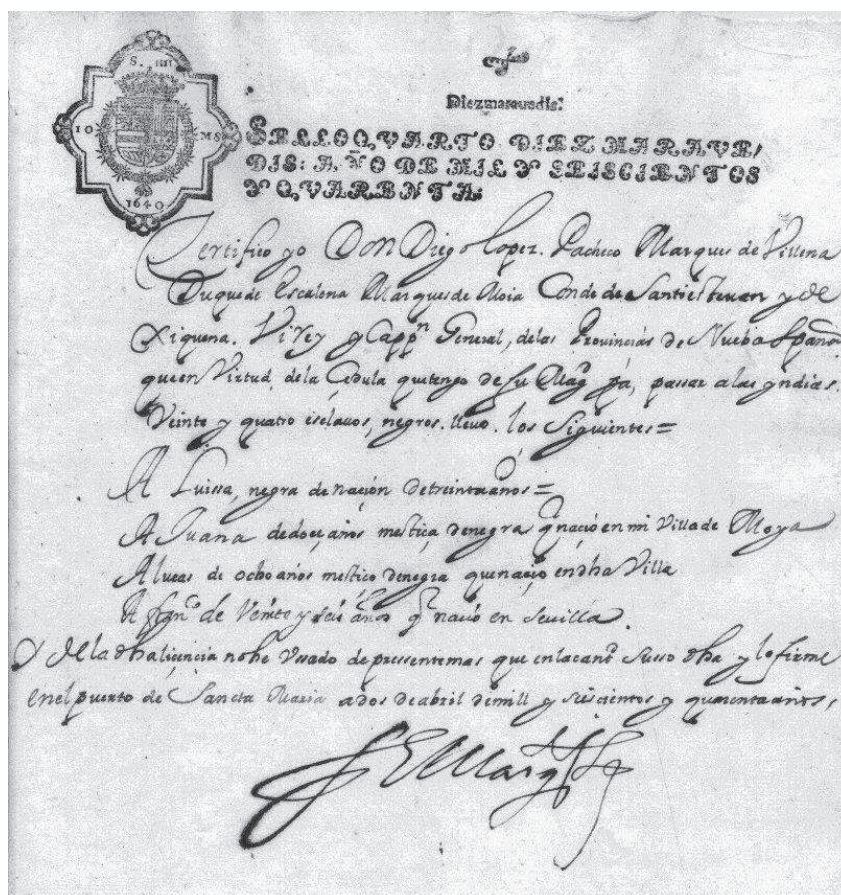 S. IIII
10 MS
1640
Diezmarauedis:
SELLO QVARTO DIEZ MARAVE,
DIS: AÑO DE MIL Y SEISCIENTOS
Y QVARENTA:
Certifico yo Don Diego Lopez. Pacheco Marques de Villena
Duque de Escalona Marques de Moia Conde de Santiesteuan y de
Xiquena. Virey y Cappn General, de las Prouincias de Nueba Spaña
que en Virtud de la Cedula que tengo de su Magd pa, passar a las yndias.
Veinte y quatro esclauos, negros. lleuo. los Siguientes=
A Luissa, negra de nación de treinta años=
A Juana de doçe años mestiça de negra q nació en mi Villa de Moya
A lucas de ocho años mestiço de negra que nació en dha Villa
A franco de Veinte y seis años q nació en Seuilla.
Y de la dha licencia no he Vssado de pressente mas que en la cantd susso dha y lo firme
en el puerto de Sancta Maria a dos de abril de mill y seiscientos y quarenta años,
El Marqs